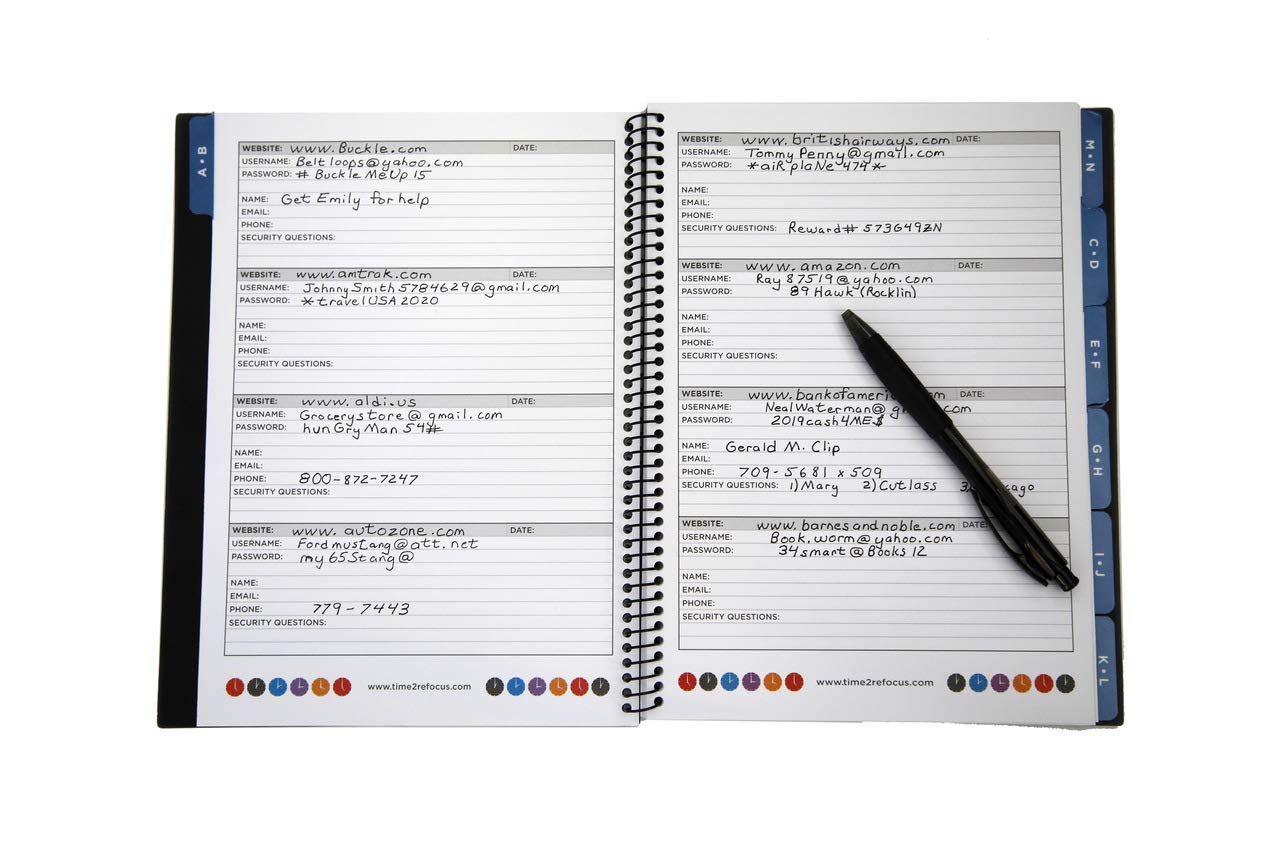 A • B
WEBSITE: www.Buckle.com DATE:
USERNAME: Beltloops@yahoo.com
PASSWORD: # BuckleMeUp15
NAME: Get Emily for help
EMAIL:
PHONE:
SECURITY QUESTIONS:
WEBSITE: www.amtrak.com DATE:
USERNAME: JohnnySmith5784629@gmail.com
PASSWORD: *travelUSA2020
NAME:
EMAIL:
PHONE:
SECURITY QUESTIONS:
WEBSITE: www.aldi.us DATE:
USERNAME: Grocerystore@gmail.com
PASSWORD: hunGryMan54#
NAME:
EMAIL:
PHONE: 800-872-7247
SECURITY QUESTIONS:
WEBSITE: www.autozone.com DATE:
USERNAME: Fordmustang@att.net
PASSWORD: my65Stang@
NAME:
EMAIL:
PHONE: 779-7443
SECURITY QUESTIONS:
www.time2refocus.com
WEBSITE: www.britishairways.com DATE:
USERNAME: TommyPenny@gmail.com
PASSWORD: *aiRplaNe474*
NAME:
EMAIL:
PHONE:
SECURITY QUESTIONS: Reward# 573G49ZN
WEBSITE: www.amazon.com DATE:
USERNAME: Ray87519@yahoo.com
PASSWORD: 89Hawk(Rocklin)
NAME:
EMAIL:
PHONE:
SECURITY QUESTIONS:
WEBSITE: DATE:
USERNAME:
PASSWORD: 2019cash4ME$
NAME: Gerald M. Clip
EMAIL:
PHONE: 709-5681 x509
SECURITY QUESTIONS: 1) Mary 2) Cutlass
WEBSITE: www.barnesandnoble.com DATE:
USERNAME: Book.worm@yahoo.com
PASSWORD: 34smart@Books12
NAME:
EMAIL:
PHONE:
SECURITY QUESTIONS:
www.time2refocus.com
M • N
C • D
E • F
G • H
I • J
K • L